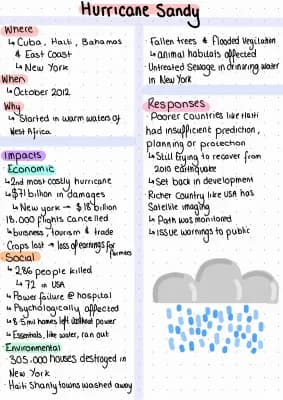 Hurricane Sandy
Where
↳ Cuba, Haiti, Bahamas
& East Coast
↳ New York
When
↳ October 2012
Why
↳ Started in warm waters of
West Africa
Impacts
Economic
↳ 2nd most costly hurricane
↳ $71 billion in damages
↳ New york → $18 billion
· 18.000 flights cancelled
↳ business, tourism & trade
· Crops lost → loss of earnings for
farmers
Social
↳ 286 people killed
↳ 72 in USA
↳ Power failure @ hospital
↳ Psychologically affected
↳ 8.5 mil homes left without power
↳ Essentials, like water, ran out
Environmental
· 305.000 houses destroyed in
New York
· Haiti Shanty towns washed away
· Fallen trees & Flooded Vegitation
↳ animal habitats affected
· Untreated Sewage in drinking water
in New York
Responses
· Poorer Countries like Haiti
had insufficient prediction,
planning or protection
↳ Still trying to recover from
2010 earthquake
↳ Set back in development
· Richer Country like USA has
Satellite imaging
↳ Path was monitored
↳ issue warnings to public